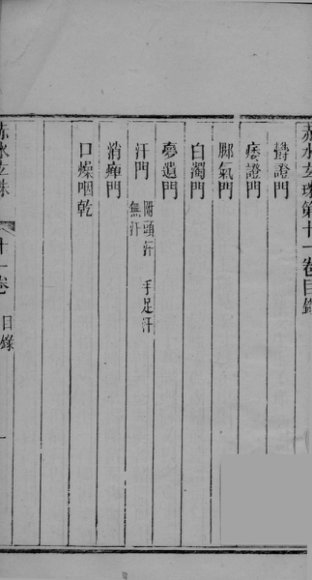 赤水玄珠第十一卷目錄
脚氣門
白濁門
夢遺門
汗門 附頭汗 手足汗 無汗
消癉門
口燥咽乾
赤水玄珠 十一卷 目錄 一